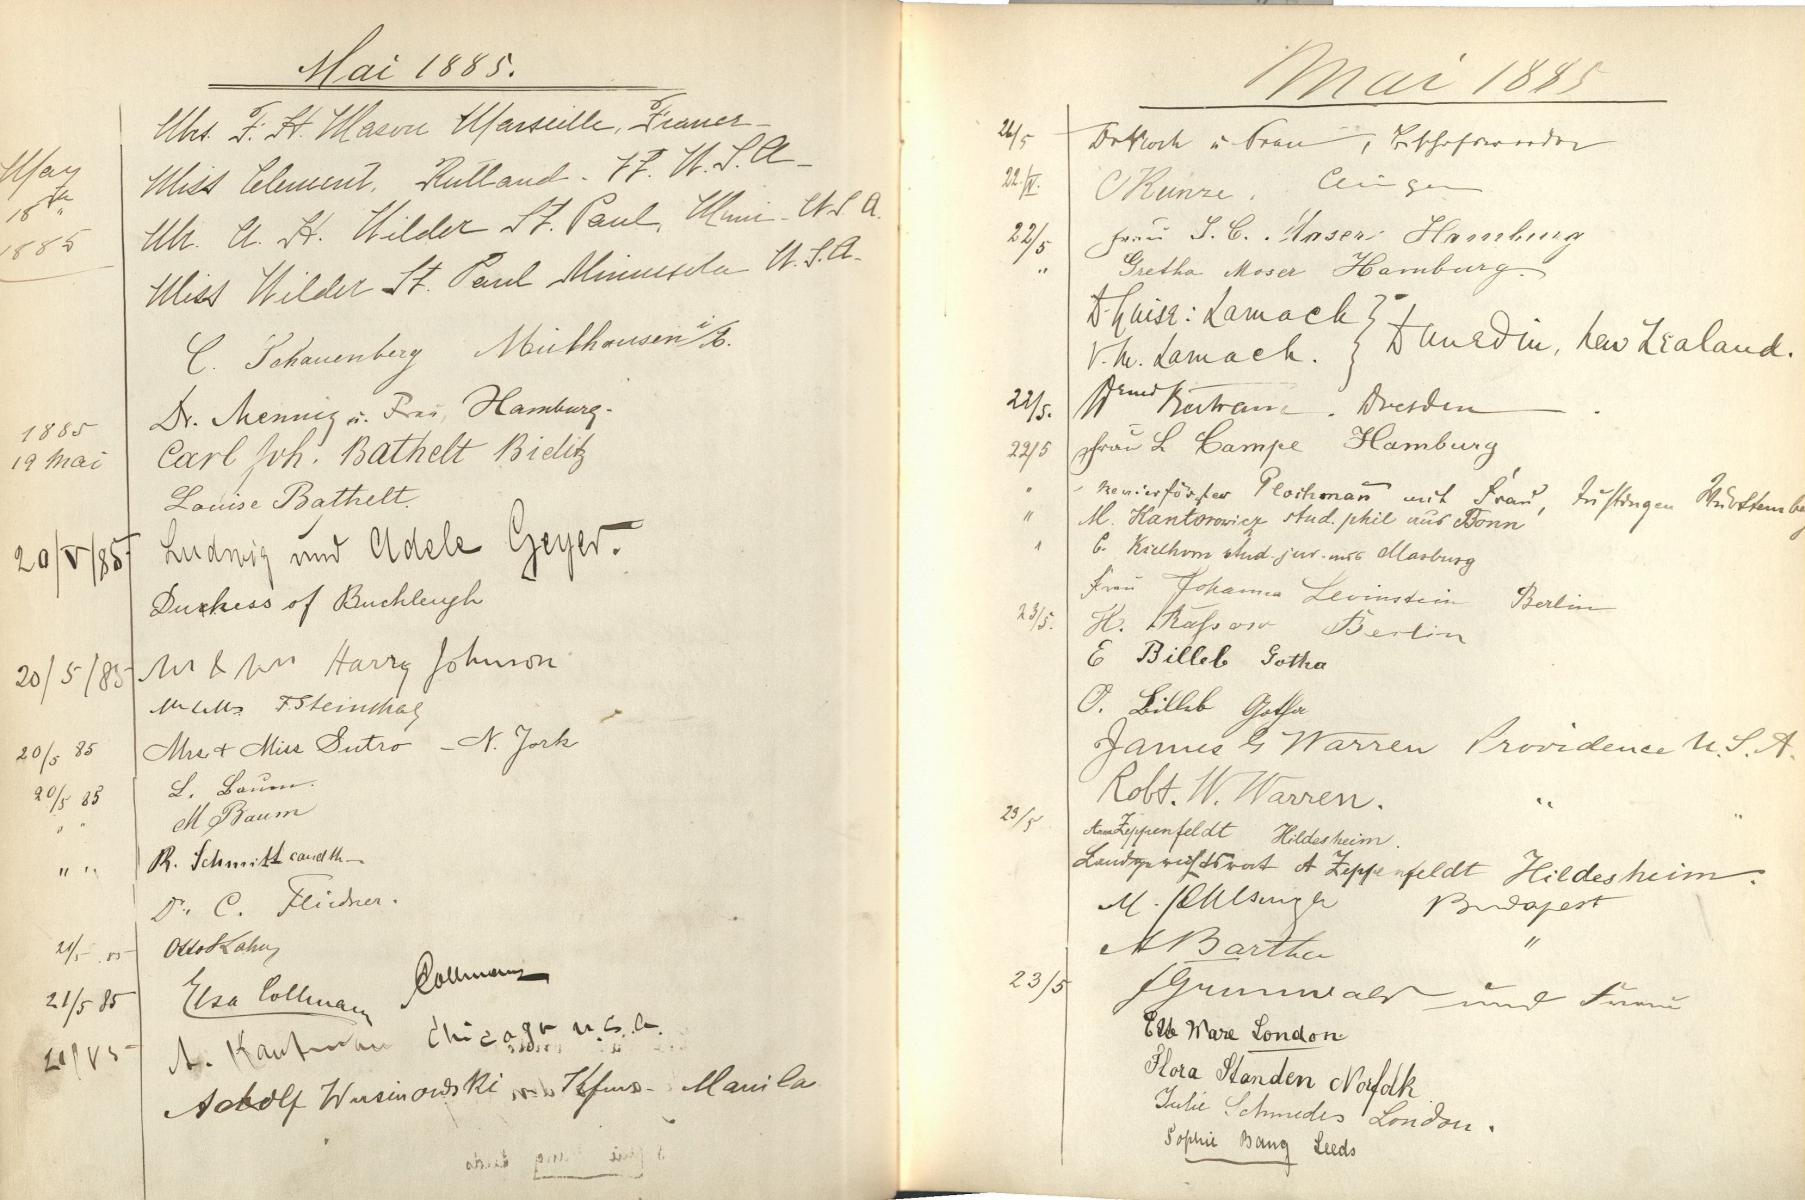 Mai 1885.
Mrs. F. H. Mason Marseille, France
May
18th
1885
Miss Clement. Rutland. Vt. U.S.A.
Mr. A. H. Wilder St. Paul, Minn. U.S.A.
Miss Wilder St. Paul Minnesota U.S.A.
C. Schauenberg Mülhausen i/E.
Dr. Mennig u. Frau, Hamburg.
1885
19 Mai Carl Joh. Bathelt Bielitz
Louise Bathelt.
20/V/85 Ludwig und Adele Geyer.
Duchess of Buchleugh
20/5/85 Mr & Mrs Harry Johnson
Mr & Mrs F. Steinthal
20/5 85 Mrs + Miss Sutro - N. York
20/5 85 L. Baum.
" " M Baum
" " R. Schmitt cand th
Dr. C. Fliedner.
21/5 85 Otto Kahn
21/5 85 Elsa Collmann Collmann
21/V 5 A. Kaufman Chicago U.S.A.
Adolf Manila
Mai 1885
21/5 Dr Koch u Frau,
22/IV. C Kunze.
22/5 Frau J. C. Moser Hamburg
" Gretha Moser Hamburg.
Larnach
Larnach. Dunedin, New Zealand.
22/5. Dresden
22/5 Frau L Campe Hamburg
" Revierförster Plochmann mit Frau, Württemberg
" M. Kantorowicz stud. phil aus Bonn
" C. Kielhorn stud. jur. aus Marburg
Frau Johanna Levinstein Berlin
23/5. H. Rassow Berlin
E Billeb Gotha
O. Billeb Gotha
James G Warren Providence U.S.A.
Robt. W. Warren. " "
23/5 Zeppenfeldt Hildesheim.
Landgerichtsrat A Zeppenfeldt Hildesheim.
M. Budapest
A Barthen "
23/5 Grunwald und Frau
Ware London
Flora Standen Norfolk
Julie Schmedes London.
Sophie Bang Leeds